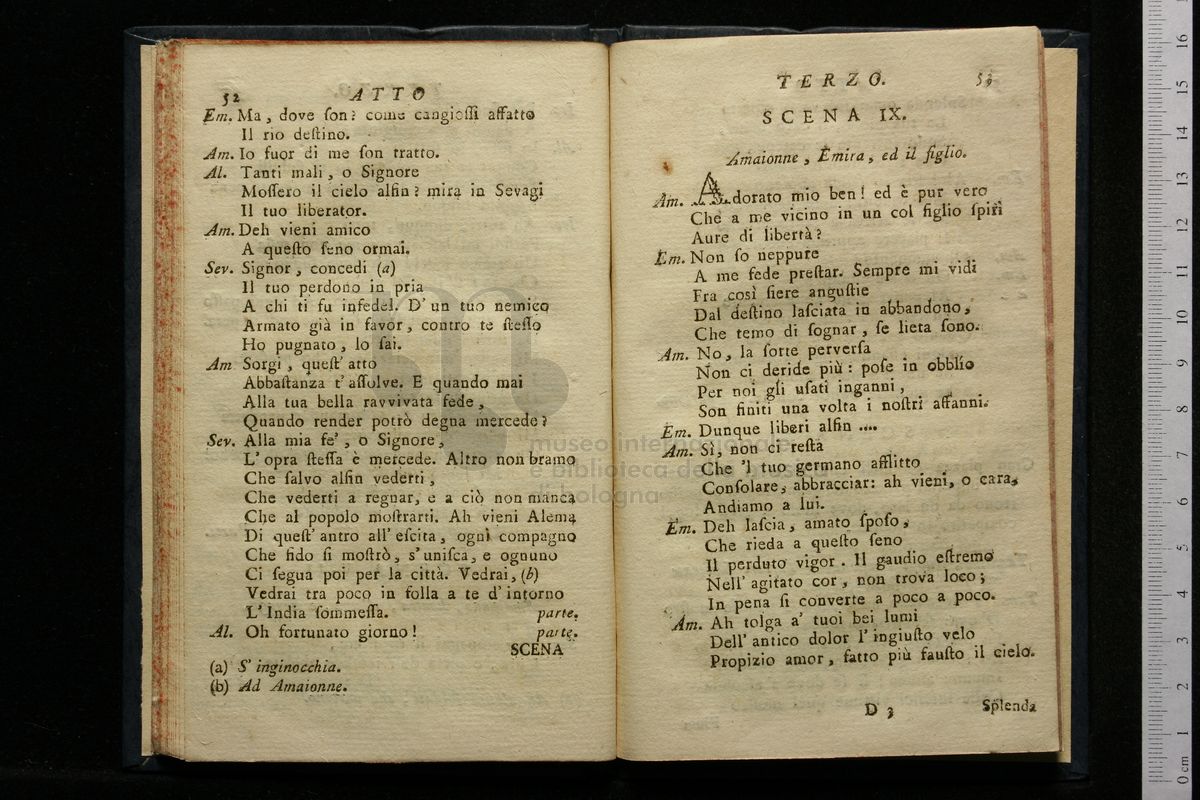 52 ATTO
Em. Ma, dove ſon? come cangioſſi affatto
Il rio deſtino.
Am. Io fuor di me ſon tratto.
Al. Tanti mali, o Signore
Moſſero il cielo alfin? mira in Sevagi
Il tuo liberator.
Am. Deh vieni amico
A queſto ſeno ormai.
Sev. Signor, concedi (a)
Il tuo perdono in pria
A chi ti fu infedel. D'un tuo nemico
Armato già in favor, contro te ſteſſo
Ho pugnato, lo ſai.
Am Sorgi, queſt'atto
Abbaſtanza t'aſſolve. E quando mai
Alla tua bella ravvivata fede,
Quando render potrò degna mercede?
Sev. Alla mia fe', o Signore,
L'opra ſteſſa è mercede. Altro non bramo
Che ſalvo alfin vederti,
Che vederti a regnar, e a ciò non manca
Che al popolo moſtrarti. Ah vieni Alema
Di queſt'antro all'eſcita, ogni compagno
Che fido ſi moſtrò, s'uniſca, e ognuno
Ci ſegua poi per la città. Vedrai, (b)
Vedrai tra poco in folla a te d'intorno
L'India ſommeſſa. parte.
Al. Oh fortunato giorno! parte.
SCENA
(a) S'inginocchia.
(b) Ad Amaionne.
TERZO. 53
SCENA IX.
Amaionne, Emira, ed il figlio.
Am. Adorato mio ben! ed è pur vero
Che a me vicino in un col figlio ſpiri
Aure di libertà?
Em. Non ſo neppure
A me fede preſtar. Sempre mi vidi
Fra così fiere anguſtie
Dal deſtino laſciata in abbandono,
Che temo di ſognar, ſe lieta ſono.
Am. No, la ſorte perverſa
Non ci deride più: poſe in obblío
Per noi gli uſati inganni,
Son finiti una volta i noſtri affanni.
Em. Dunque liberi alfin ....
Am. Sì, non ci reſta
Che 'l tuo germano afflitto
Conſolare, abbracciar: ah vieni, o cara,
Andiamo a lui.
Em. Deh laſcia, amato ſpoſo,
Che rieda a queſto ſeno
Il perduto vigor. Il gaudio eſtremo
Nell'agitato cor, non trova loco;
In pena ſi converte a poco a poco.
Am. Ah tolga a' tuoi bei lumi
Dell'antico dolor l'ingiuſto velo
Propizio amor, fatto più fauſto il cielo.
D 3 Splenda
museo internazionale
e biblioteca della musica
di bologna
0 cm 1 2 3 4 5 6 7 8 9 10 11 12 13 14 15 16